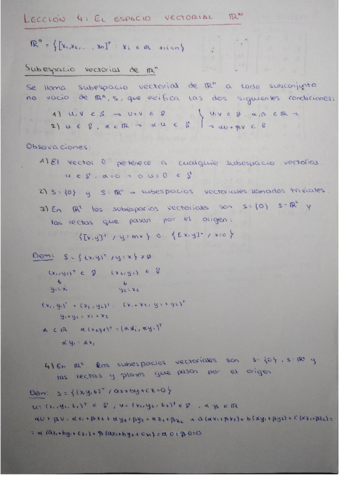 LECCIÓN 4: EL ESPACIO VECTORIAL ℝⁿ
ℝⁿ = {[x₁,x₂, ... xn]ᵗ : xi ∈ ℝ
Subespacio vectorial de ℝⁿ
Se llama subespacio vectorial de ℝⁿ a todo subconjunto
no vacío de ℝⁿ, S, que verifica las dos siguientes condiciones:
1) u, v ∈ S → u+v ∈ S
2) u ∈ S, α ∈ ℝ → α u ∈ S
Observaciones:
1) El vector 0 pertenece a cualquier subespacio vectorial
u ∈ S, α=0 → 0 u = 0 ∈ S
2) S = {0} y S = ℝⁿ → subespacios vectoriales llamados triviales
3) En los subespacios vectoriales son S = {0} S = ℝ² y
las rectas que pasan por el origen:
{[x,y]ᵗ / y = mx} o {[x,y]ᵗ / x=0}
Dem: S = {(x,y)ᵗ / y = x}
(x₁,y₁)ᵗ ∈ S (x₂,y₂) ∈ S
y₁=x₁ y₂=x₂
(x₁,y₁)ᵗ + (x₂,y₂)ᵗ = (x₁+x₂, y₁+y₂)ᵗ
y₁+y₂ = x₁+x₂
α ∈ ℝ
4) En los subespacios vectoriales son S = {0}, S = y
las rectas y planos que pasan por el origen
Dem: S = {(x,y,z)ᵗ / ax+by+cz=0}
u = (x₁,y₁,z₁)ᵗ ∈ S, v = (x₂,y₂,z₂)ᵗ ∈ S